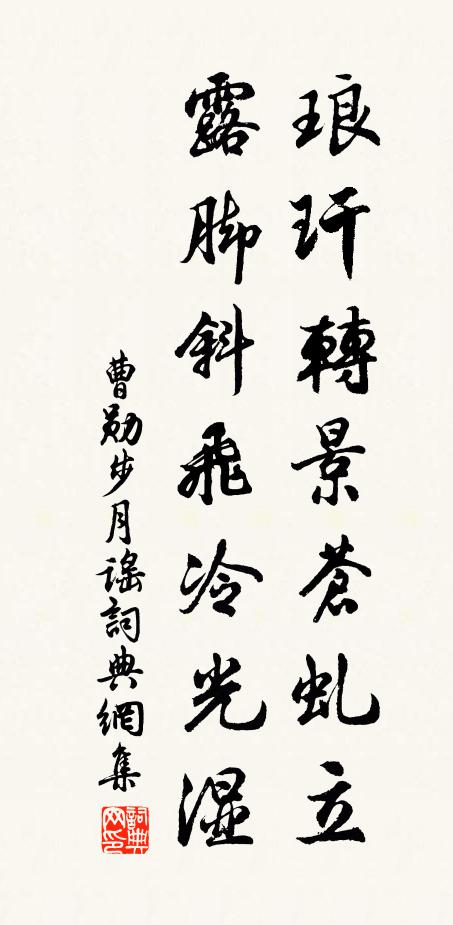 琅玕轉景蒼虬立
露脚斜飛冷光湿
曹勛步月謠詞典網集
詞典網印